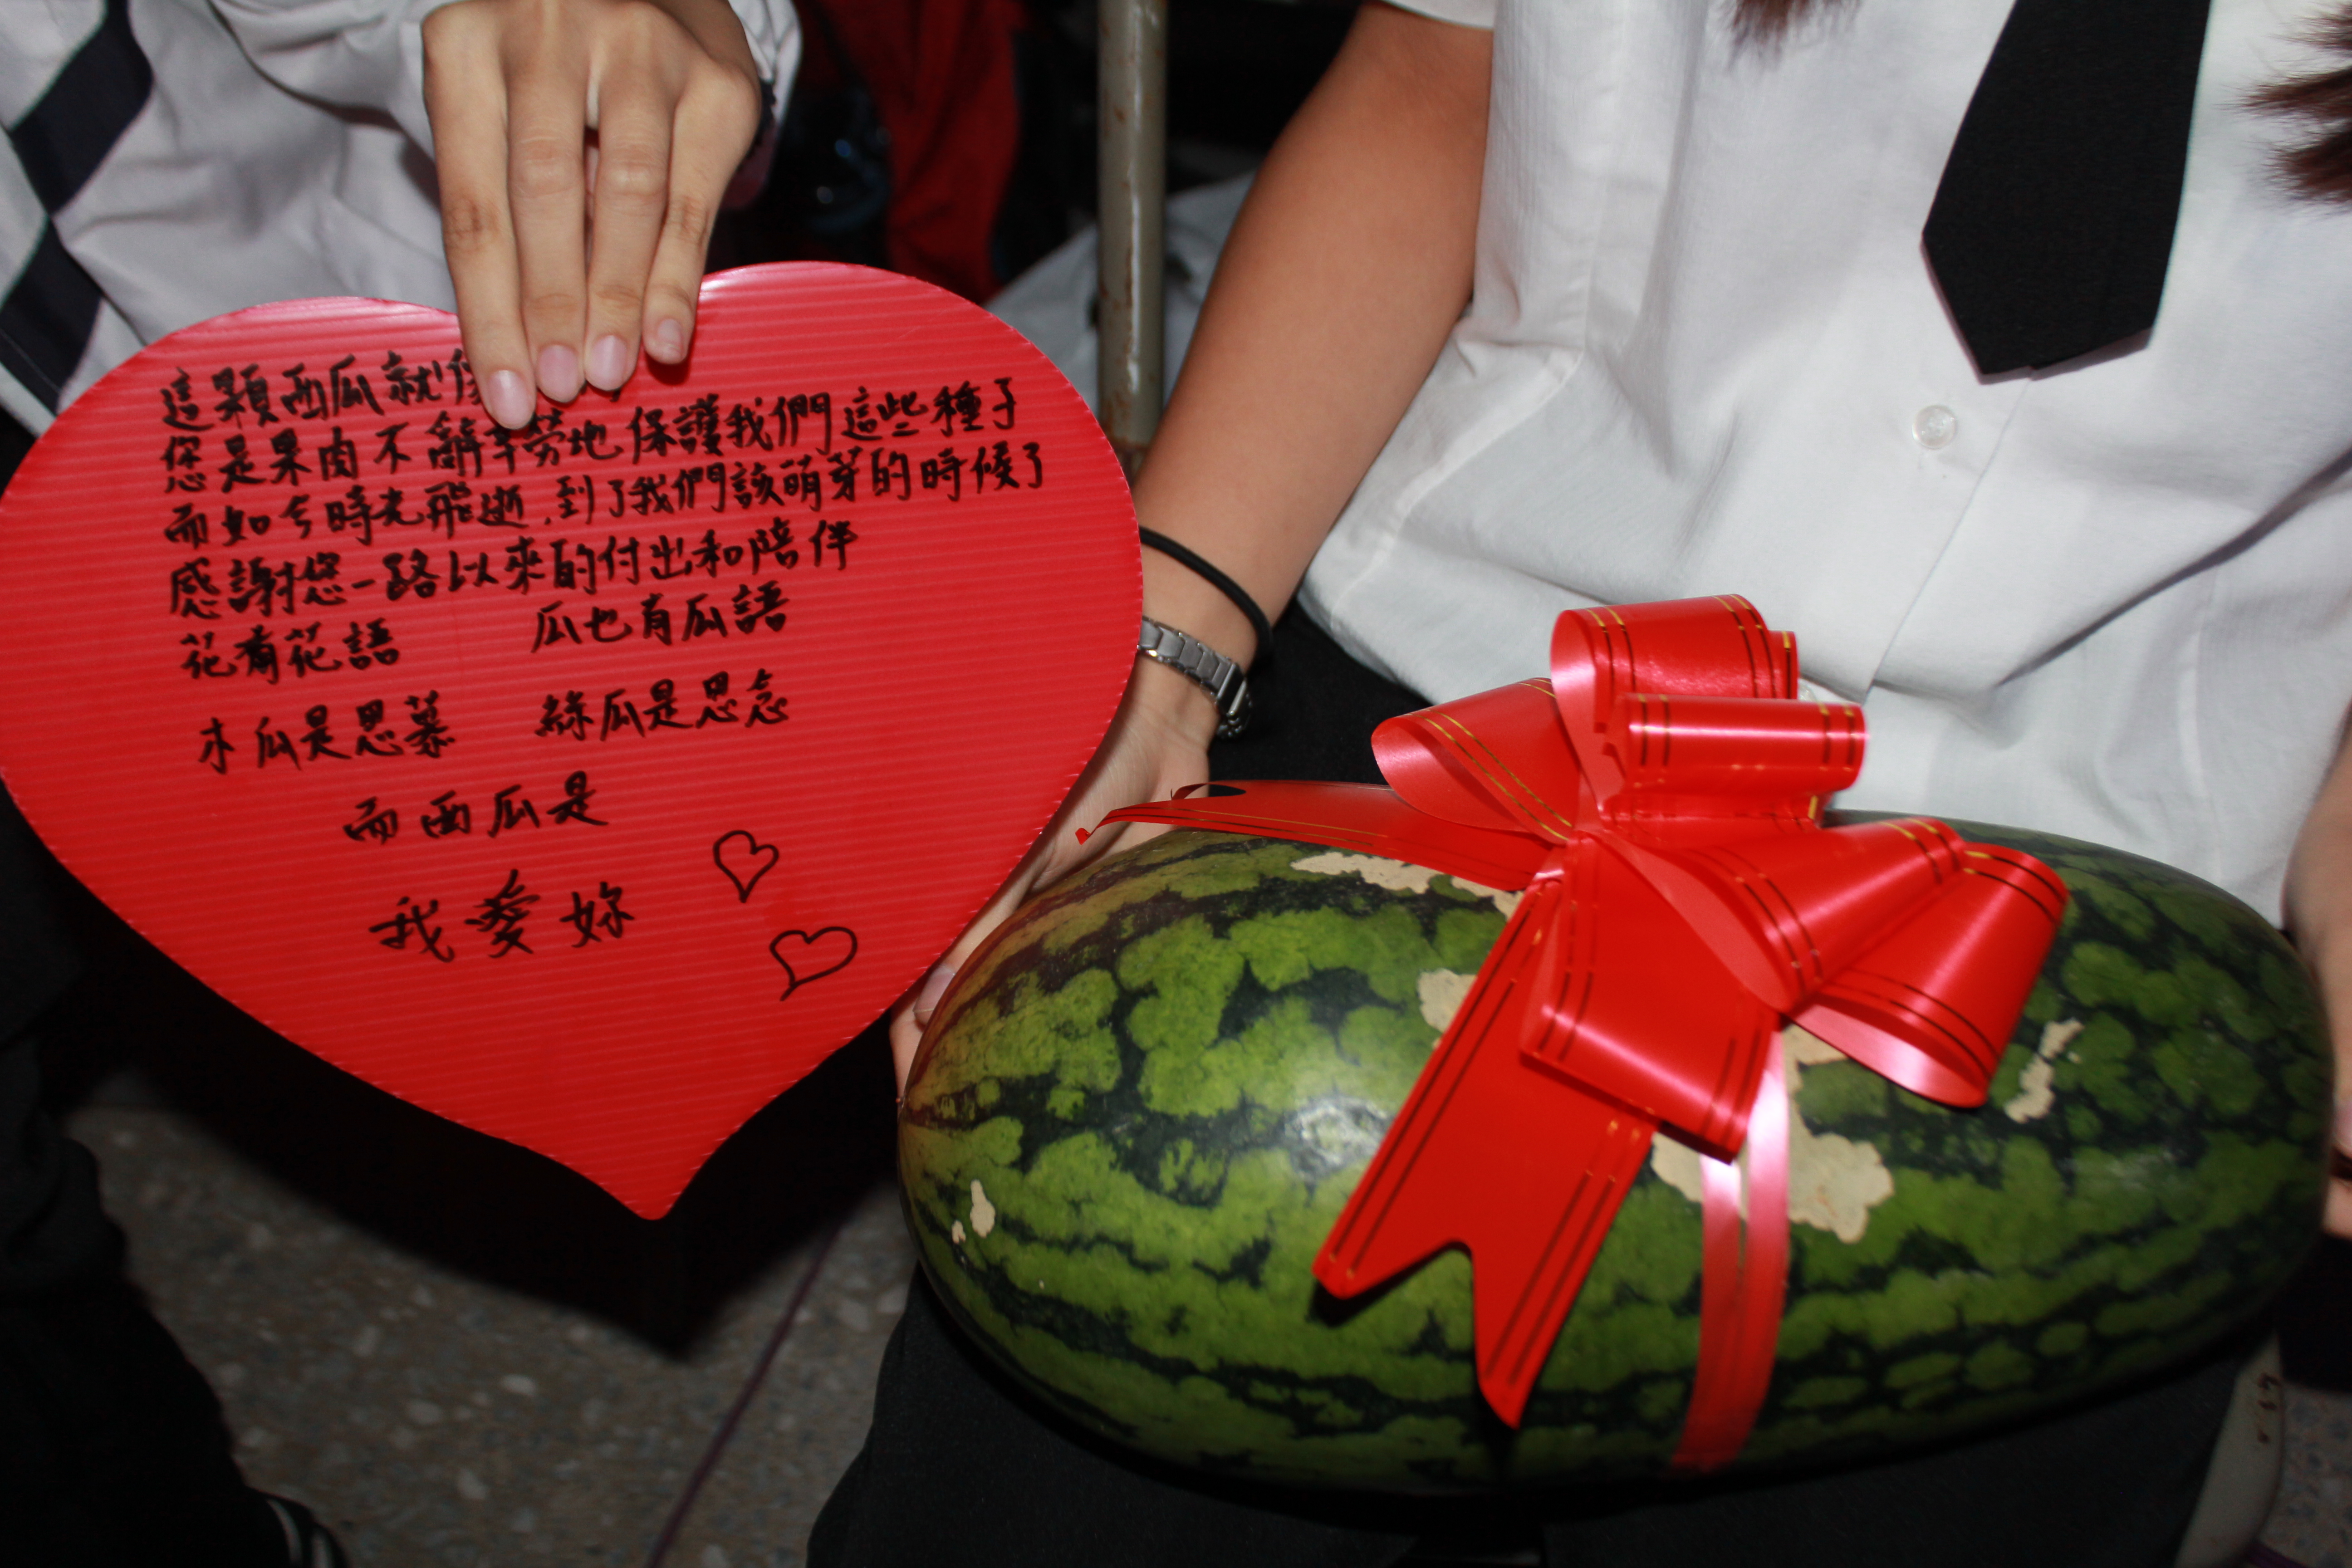 這顆西瓜就像
您是果肉不辭辛勞地保護我們這些種子
而如今時光飛逝,到了我們該萌芽的時候了
感謝您一路以來的付出和陪伴
花有花語 瓜也有瓜語
木瓜是思慕 絲瓜是思念
而西瓜是
我愛妳